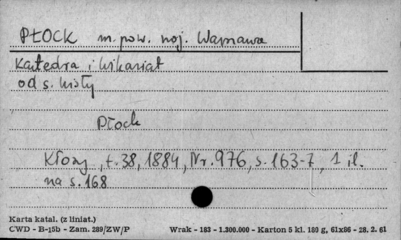 PŁOCK m. pow. woj. Warszawa
Katedra i Wikariat
od s. Wisły
Płock
Kłosy, t. 38, 1884, Nr. 976, s. 163-7, 1 il.
na s. 168
Karta katal. (z liniat.)
CWD - B-15b - Zam. 289/ZW/P
Wrak - 163 - 1.300.000 - Karton 5 kl. 180 g, 61x86 - 28. 2. 61